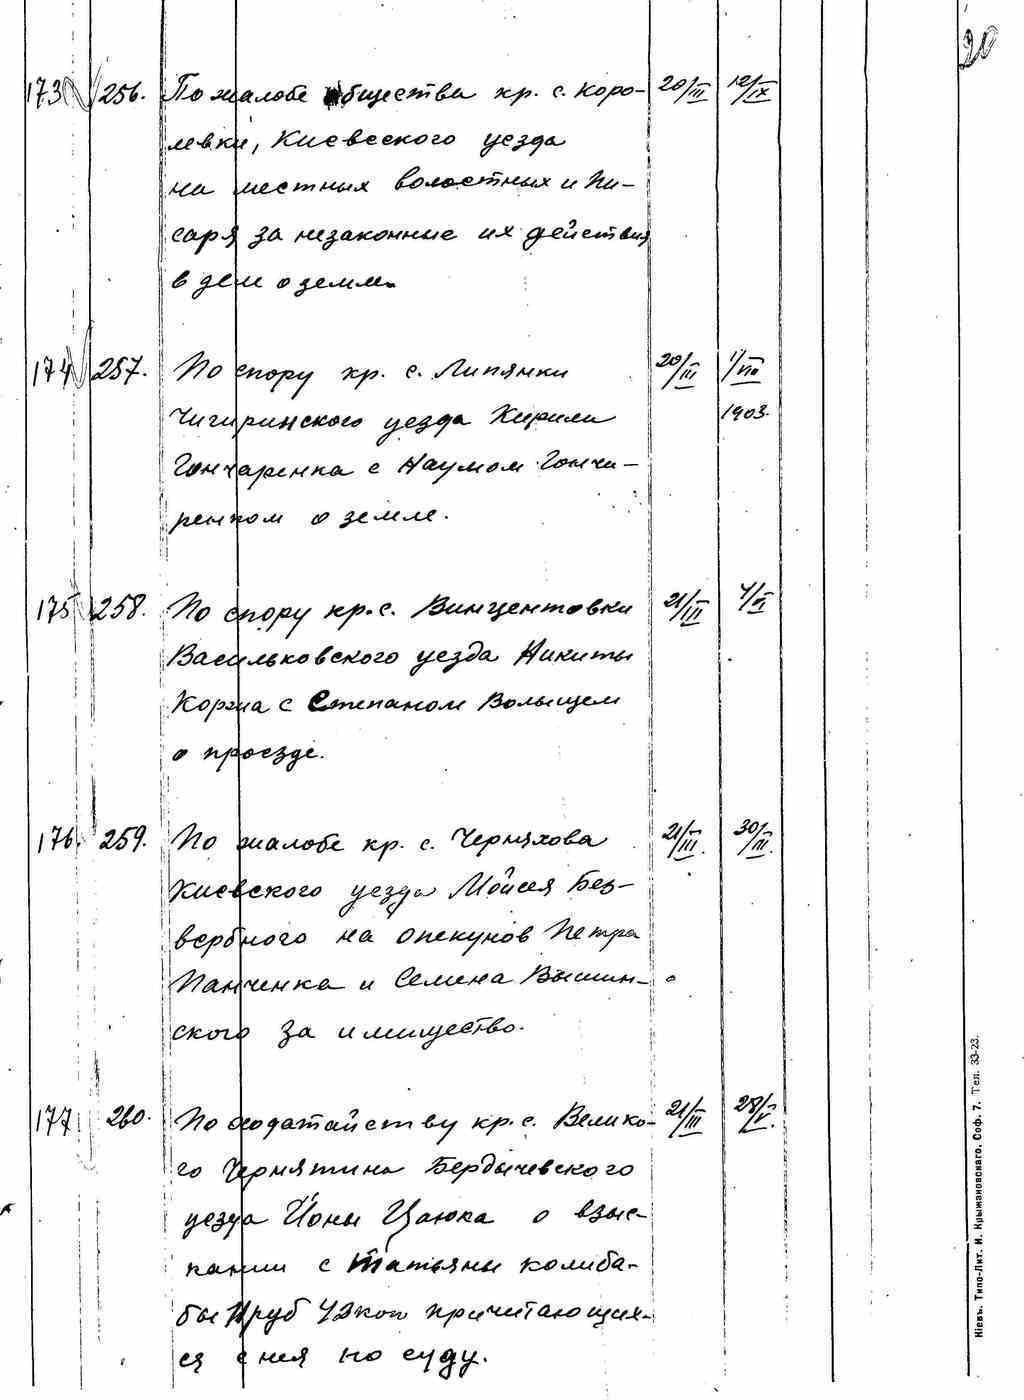 20
173 256. По жалобе общества кр. с. Коро- 20/III 12/IX
левки, Киевского уезда
на местных волостных и пи-
саря за незаконные их действия
в деле о земле.
174 257. По спору кр. с. Липянки 20/III
Чигиринского уезда Кирила 1903.
Гончаренка с Наумом Гонча-
ренком о земле.
175 258. По спору кр. с. Винцентовки 21/III 4/VI
Васильковского уезда Никиты
Коржа с Степаном Волынцем
о проезде.
176. 259. По жалобе кр. с. Черняхова 21/III. 30/III.
Киевского уезда Мойсея Без-
вербного на опекунов Петра
Панченка и Семена Вышин-
ского за имищество.
177 260. По ходатайству кр. с. Велико- 21/III 28/V.
го Чернятина Бердычевского
уезда Йоны Цаюка о взыс-
кании с Татьяны Колиба-
бы руб 42 коп причитающих-
ся с нея по суду.
Кіевъ. Типо-Лит. И. Крыжановскаго. Соф. 7. Тел. 33-23.